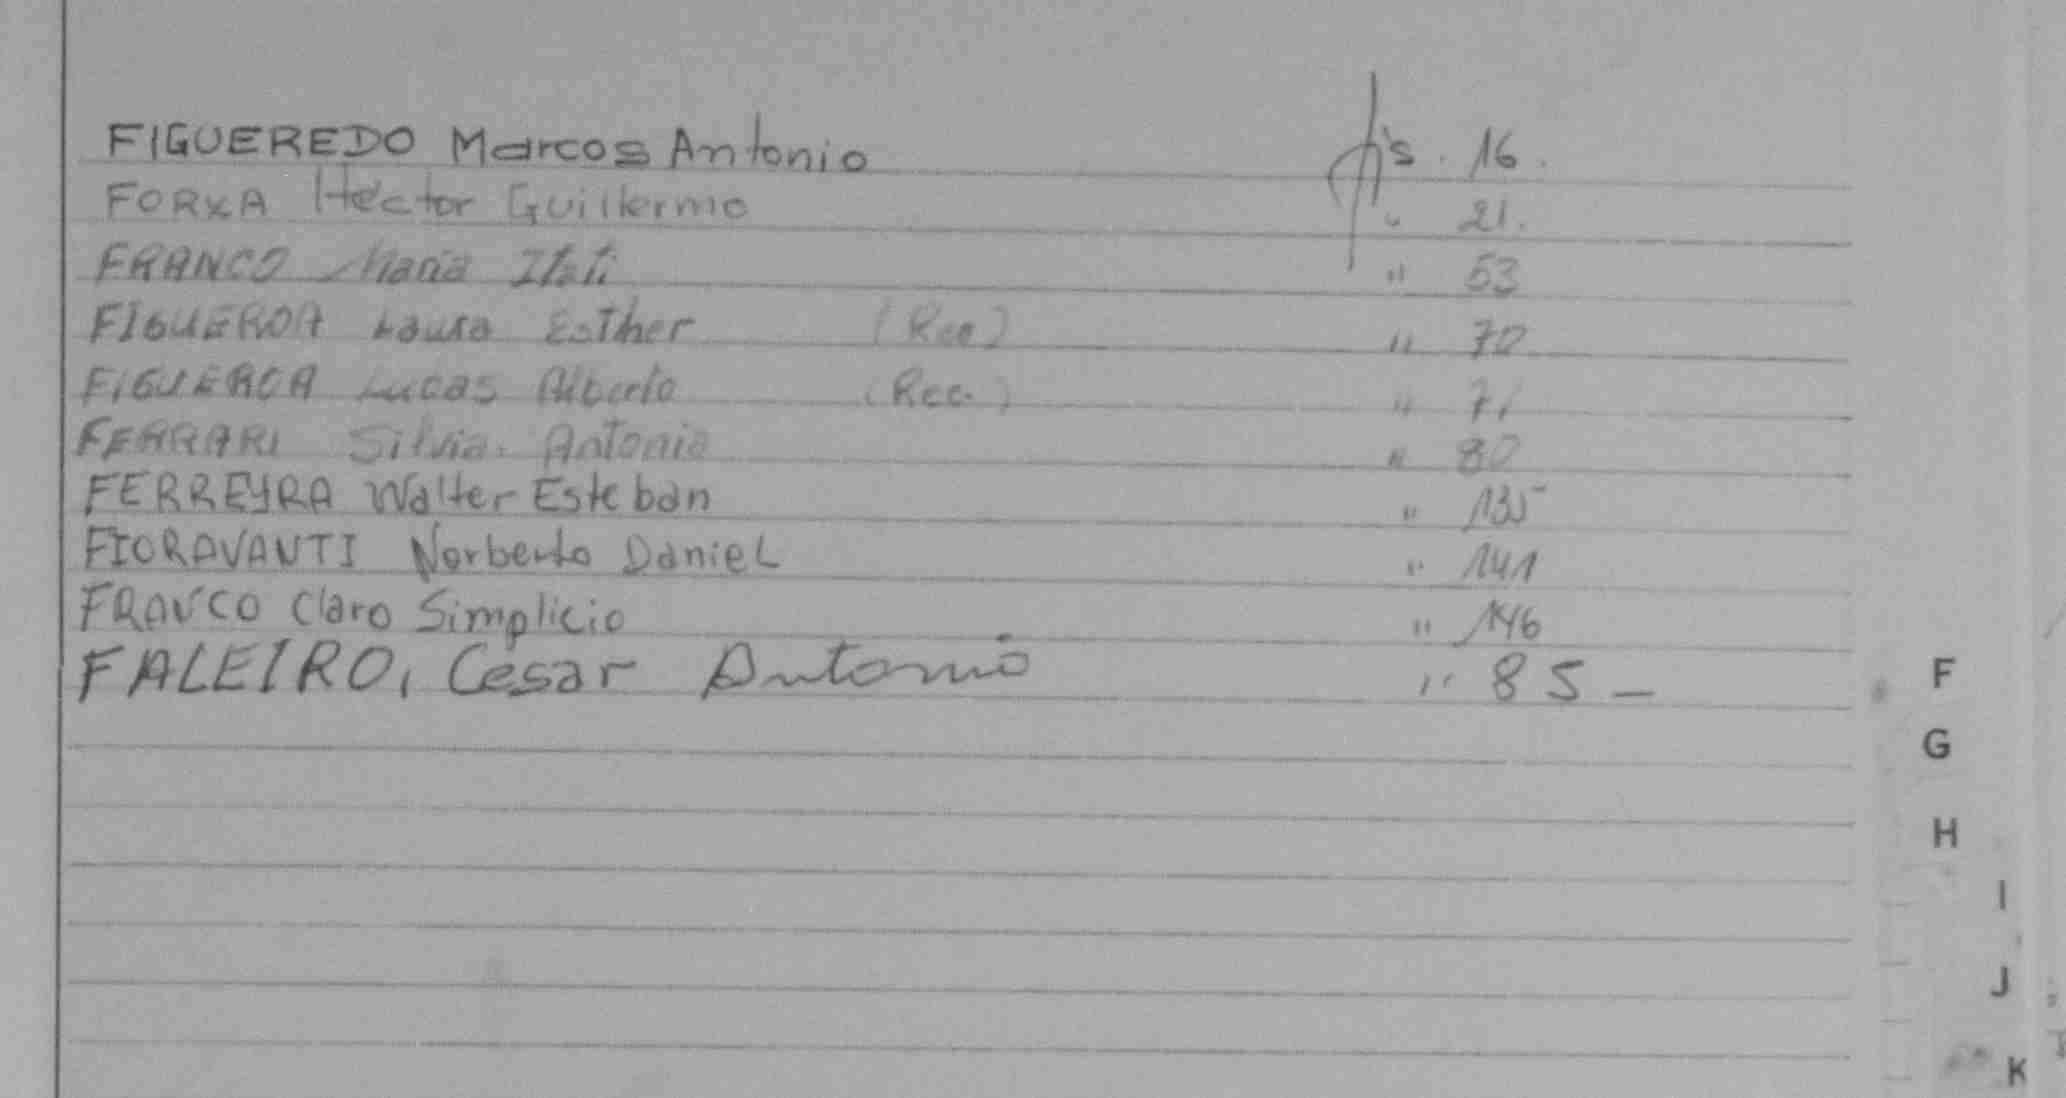 FIGUEREDO Marcos Antonio fjs. 16.
FORXA Héctor Guillermo " 21.
FRANCO Maria Itati " 53
FIGUEROA Laura Esther (Rec) " 70
FIGUEROA Lucas Alberto (Rec.) " 71
FERRARI Silvia Antonia " 80
FERREYRA Walter Esteban " 135
FIORAVANTI Norberto Daniel " 141
FRANCO Claro Simplicio " 146
FALEIRO, Cesar Antonio " 85 -
F
G
H
I
J
K